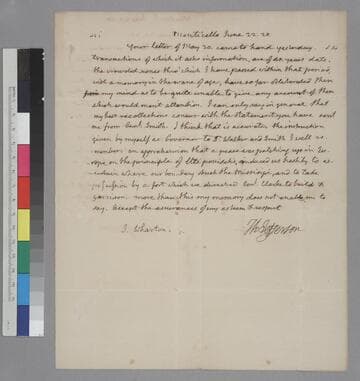 Sir Monticello June 22. 20
Your letter of May 20 came to hand yesterday. the
transactions of which it asks information, are of 40. years date.
the crowded scenes thro' which I have passed within that period,
with a memory on the wane of age, have so far obliterated them
from my mind as to be quite unable to give any account of them
which would merit attention. I can only say in general that
my best recollections concur with the statement you have sent
me from Smith. I think that is accurate. the instruction
given by myself as Governor to Walker and Smith I well re
-member. an apprehension that a peace was patching up in Eu
rope on the principle of Uti possidetis, induced us hastily to as
certain where our boundary struck the Missisipi, and to take
possession by a fort which we directed Genl. Clarke to build &
garrison. more than this my memory does not enable me to
say. Accept the assurances of my esteem & respect
Th Jefferson
J. Wharton.